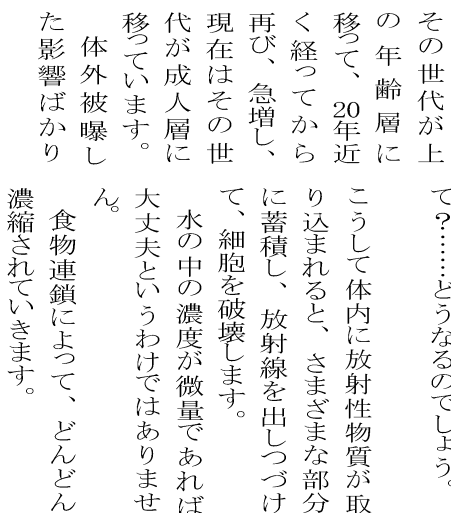 その世代が上
の年齢層に
移って、20年近
く経ってから
再び、急増し、
現在はその世
代が成人層に
移っています。
体外被曝し
た影響ばかり
て？……どうなるのでしょう。
こうして体内に放射性物質が取
り込まれると、さまざまな部分
に蓄積し、放射線を出しつづけ
て、細胞を破壊します。
水の中の濃度が微量であれば
大丈夫というわけではありませ
ん。
食物連鎖によって、どんどん
濃縮されていきます。